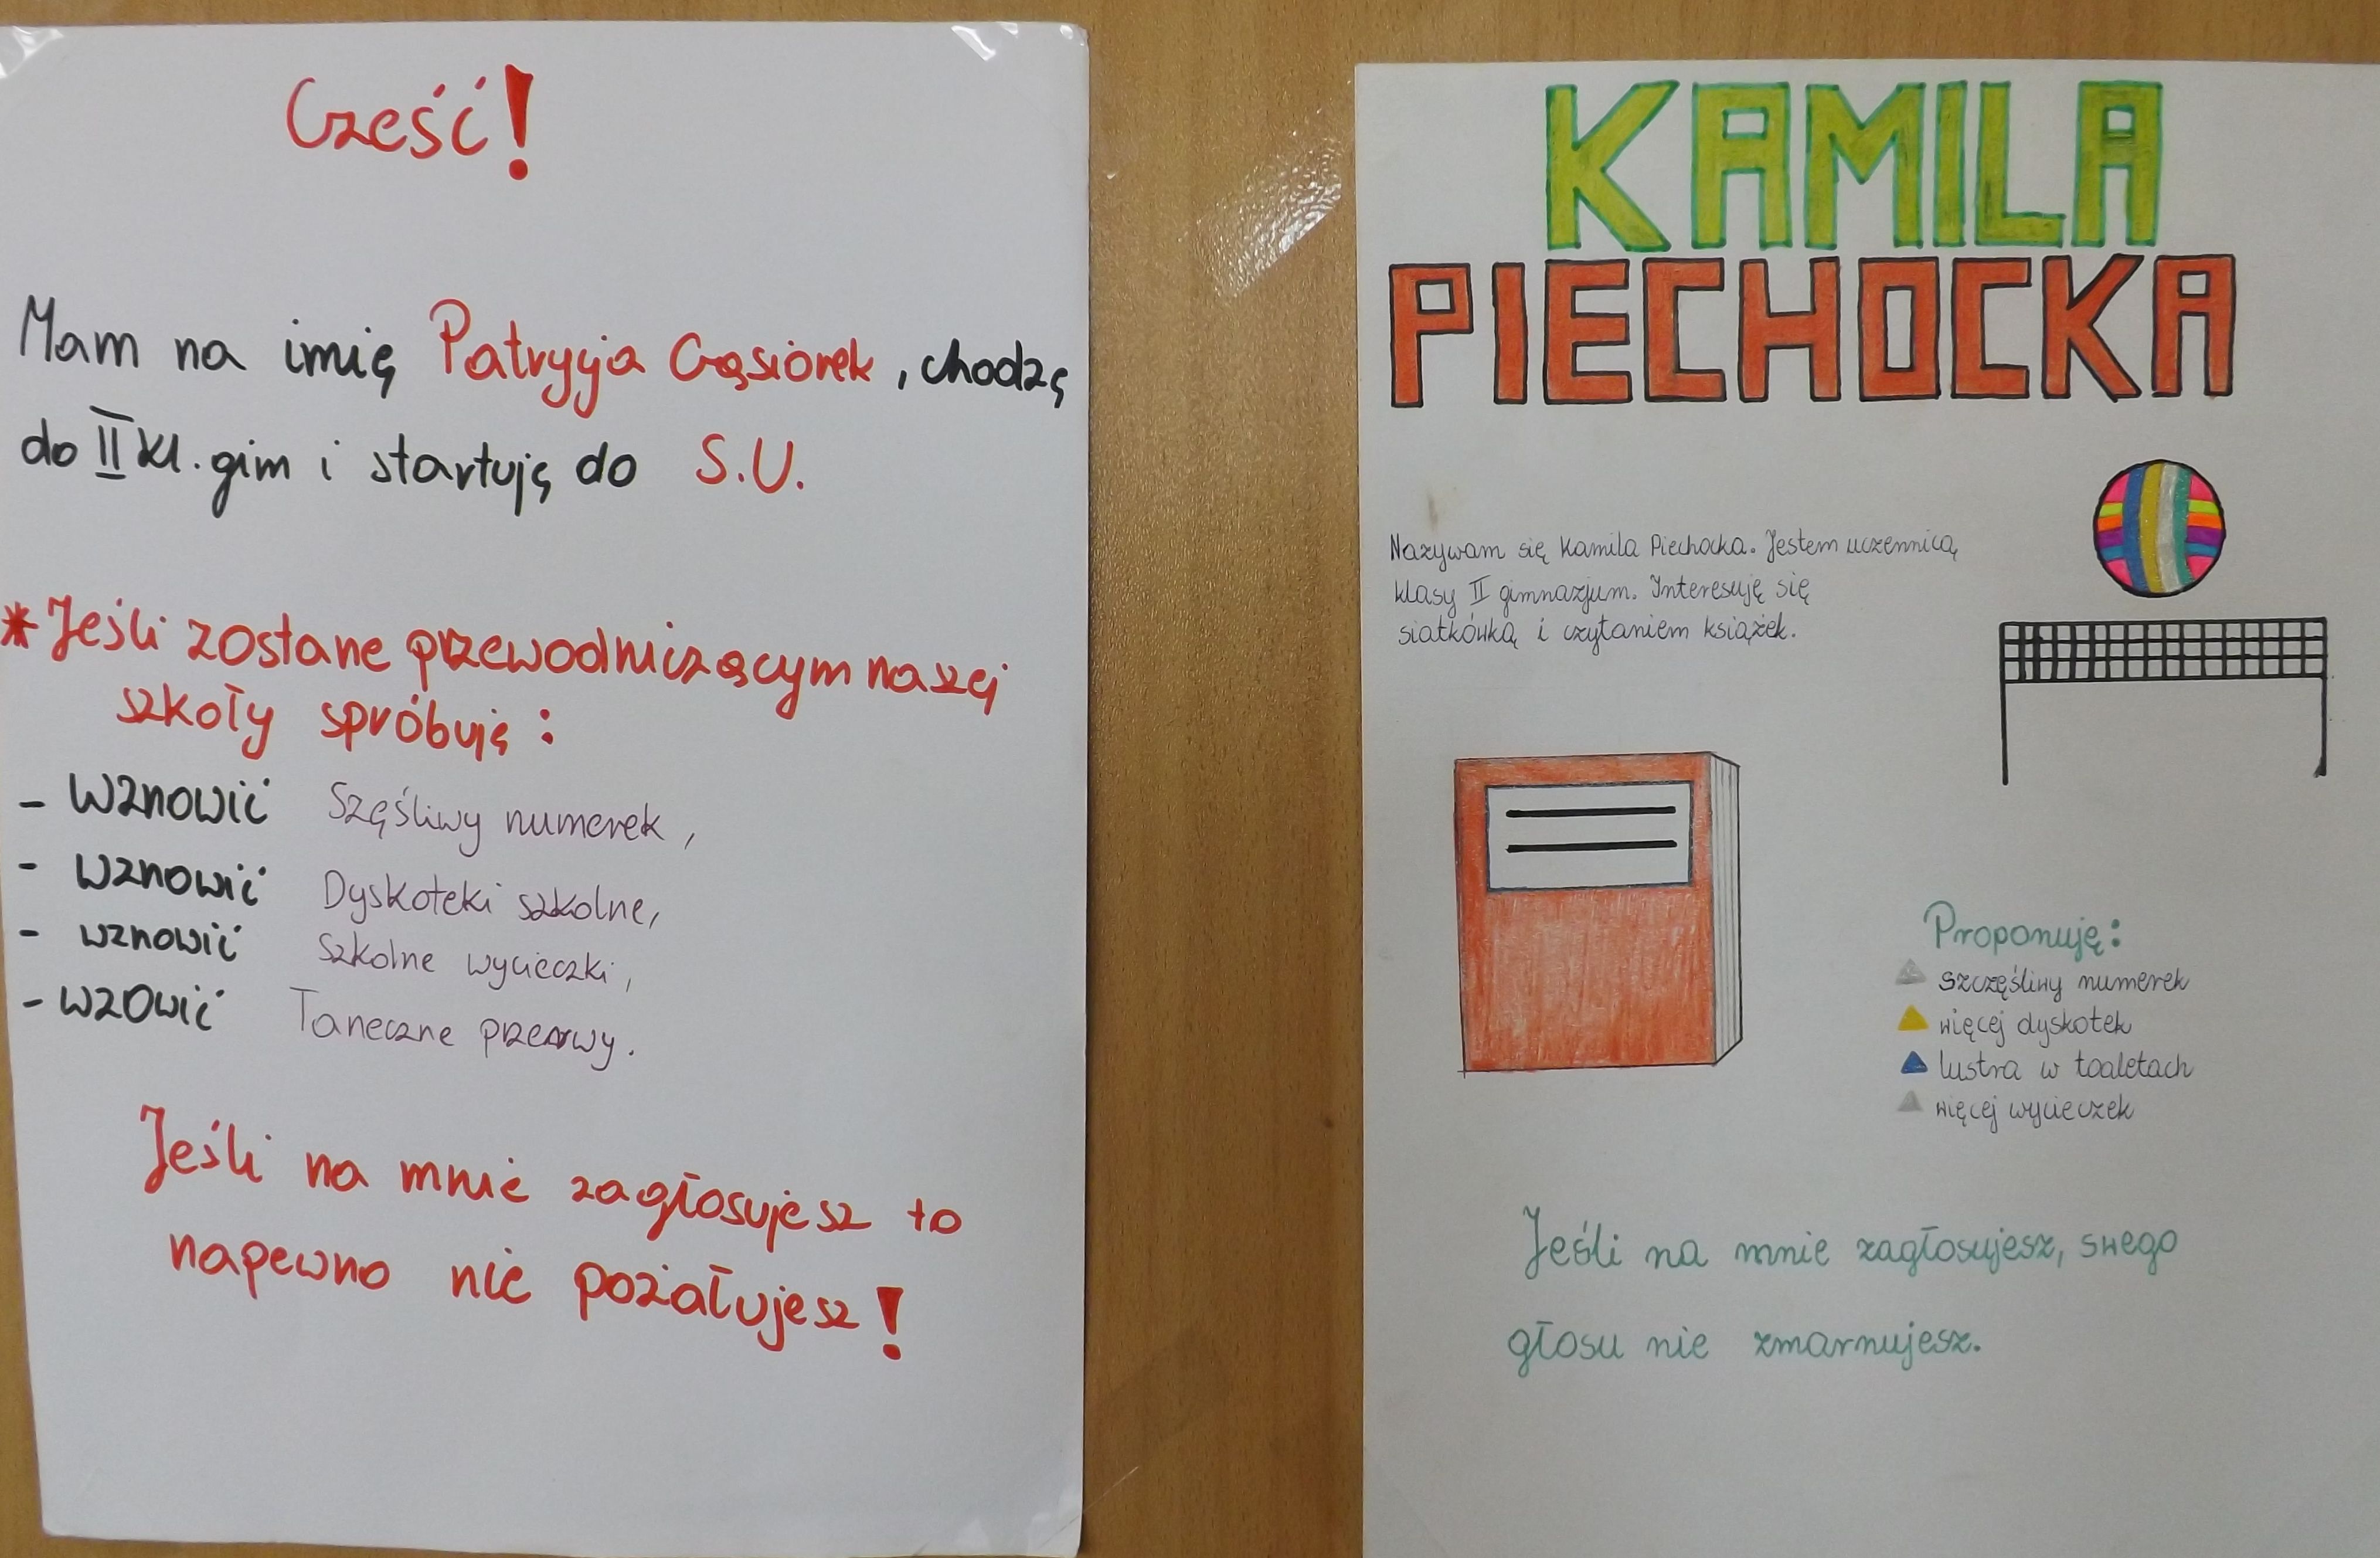 Cześć!
Mam na imię Patrycja Gąsiorek, chodzę
do II kl. gim i startuję do S.U.
*Jeśli zostane przewodniczącym naszej
szkoły spróbuję:
- Wznowić Szęśliwy numerek,
- Wznowić Dyskoteki szkolne,
- wznowić Szkolne wycieczki,
- wzowić Taneczne przerwy.
Jeśli na mnie zagłosujesz to
napewno nie pożałujesz!
KAMILA
PIECHOCKA
Nazywam się Kamila Piechocka. Jestem uczennicą
klasy II gimnazjum. Interesuję się
siatkówką i czytaniem książek.
Proponuję:
szczęśliwy numerek
więcej dyskotek
lustra w toaletach
więcej wycieczek
Jeśli na mnie zagłosujesz, swego
głosu nie zmarnujesz.